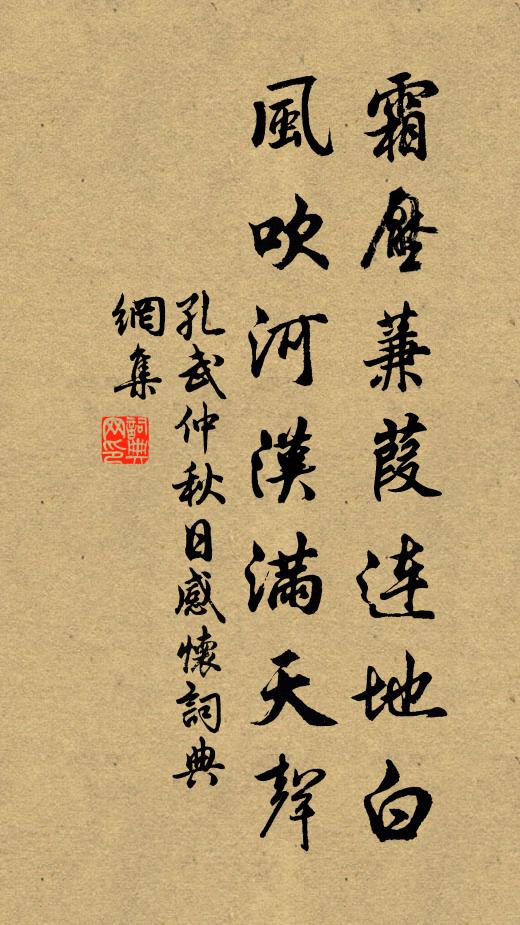 霜壓蒹葭連地白
風吹河漢滿天聲
孔武仲秋日感懷詞典
網集
詞典
網印